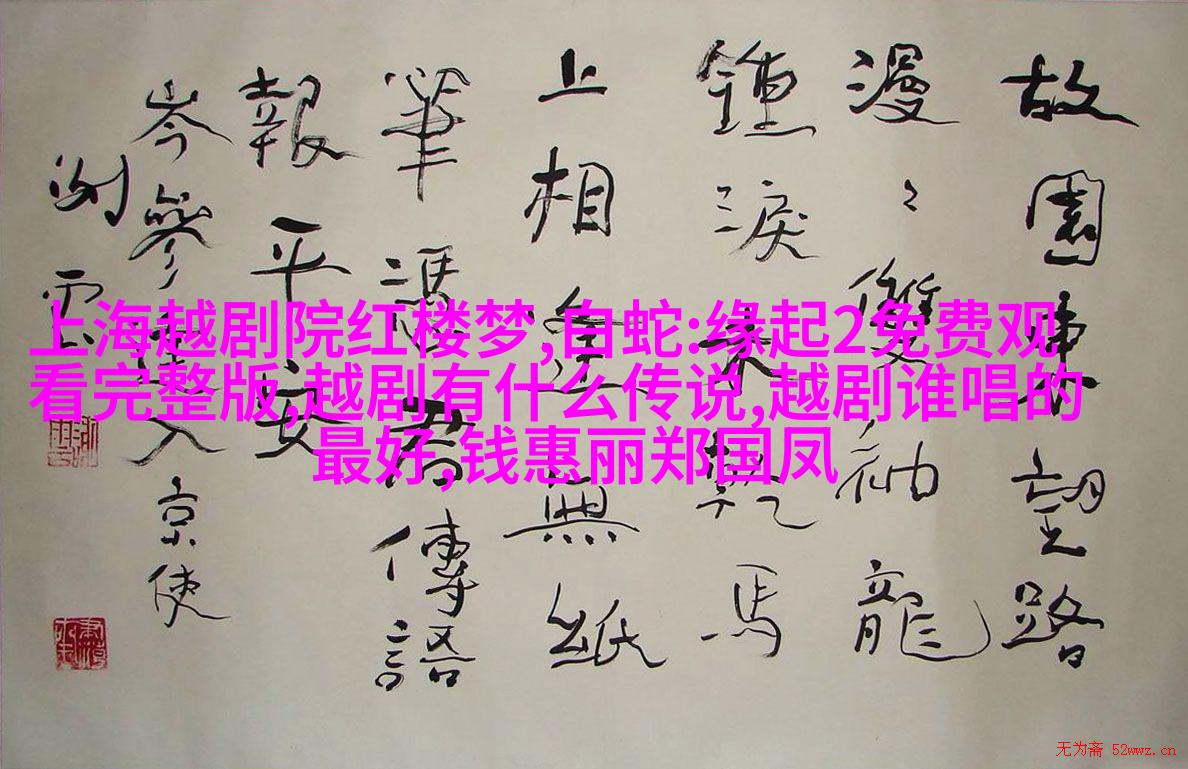 故園東望路
漫〻雙袖龍
鍾淚未乾馬
上相逢無紙
筆憑君傳語
報平安
岑參逢入京使
上海越剧院红楼梦,白蛇:缘起2免费观
看完整版,越剧有什么传说,越剧谁唱的
最好,钱惠丽郑国凤
无为斋 52wwz.cn